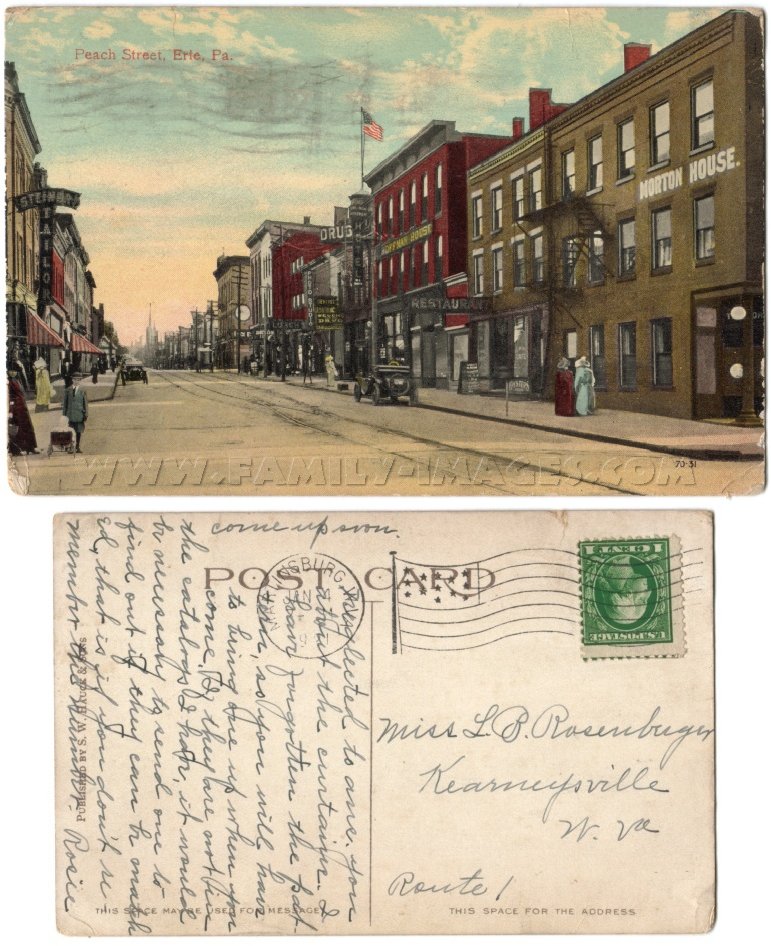 Peach Street, Erie, Pa.
STEINER
TAILOR
DRUGS
HOFFMAN HOUSE
RESTAURANT
MORTON HOUSE.
WWW.FAMILY-IMAGES.COM
70-31
come up soon.
POST CARD
MARTINSBURG
neglected to ans. you
about the curtains. I
have forgotten the pat-
tern, so you will have
to bring one up when you
come, If they are not in
the catalogs I have, it would
be necessary to send one to
find out if they can be match
ed, that is if you don't re-
member the number. Rosie
PUBLISHED BY S. W.
U.S. POSTAGE
Miss L. B. Rosenberger
Kearneysville
W. Va
Route 1
THIS SPACE MAY BE USED FOR MESSAGE
THIS SPACE FOR THE ADDRESS